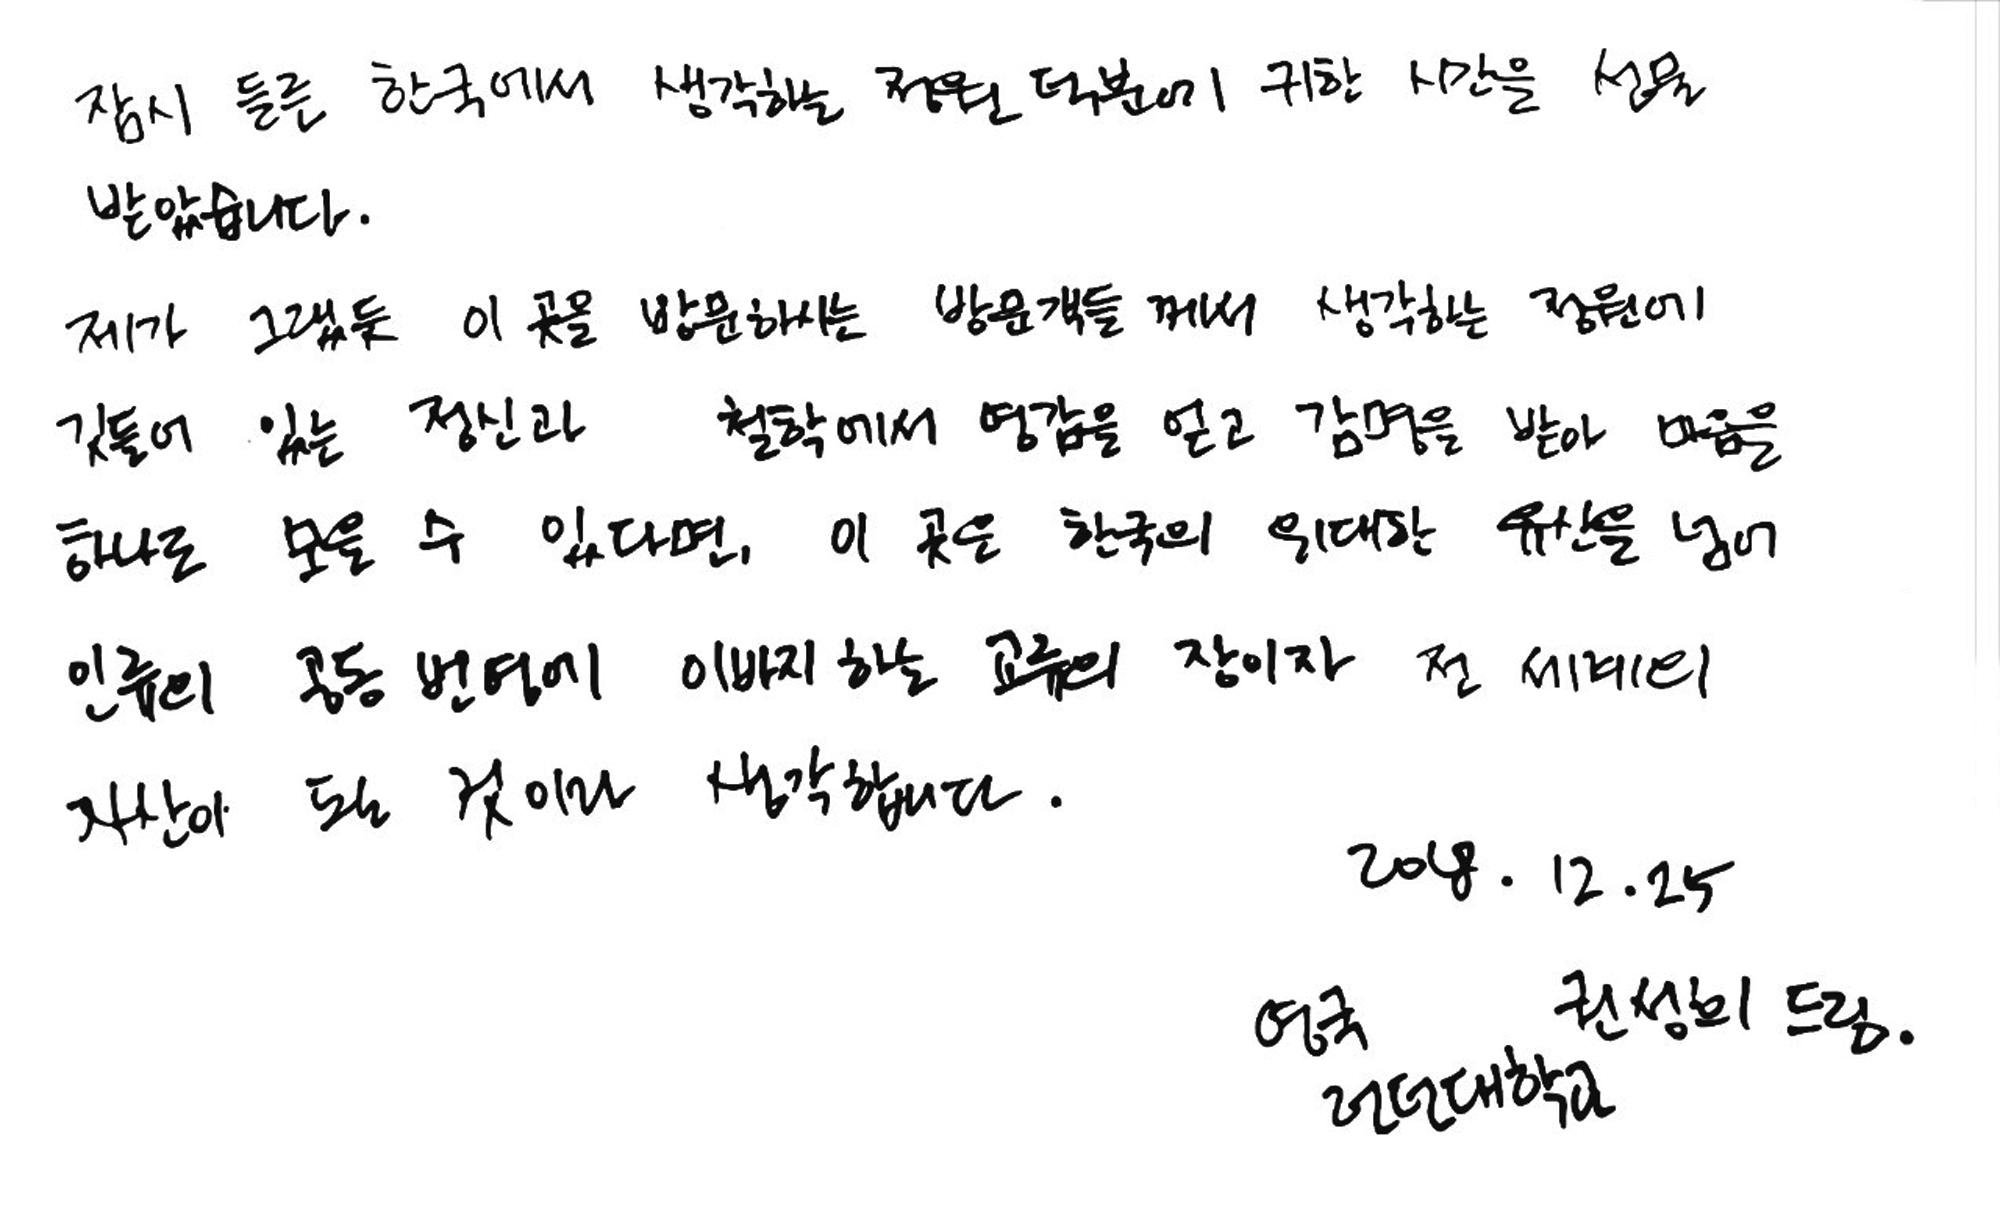 잠시 들른 한국에서 생각하는 정원 덕분에 귀한 시간을 선물
받았습니다.
제가 그랬듯 이 곳을 방문하시는 방문객들께서 생각하는 정원에
깃들어 있는 정신과 철학에서 영감을 얻고 감명을 받아 마음을
하나로 모을 수 있다면, 이 곳은 한국의 위대한 유산을 넘어
인류의 공동 번영에 이바지하는 교류의 장이자 전 세계의
자산이 되는 것이라 생각합니다.
2018. 12. 25
영국 권성희 드림.
런던대학교